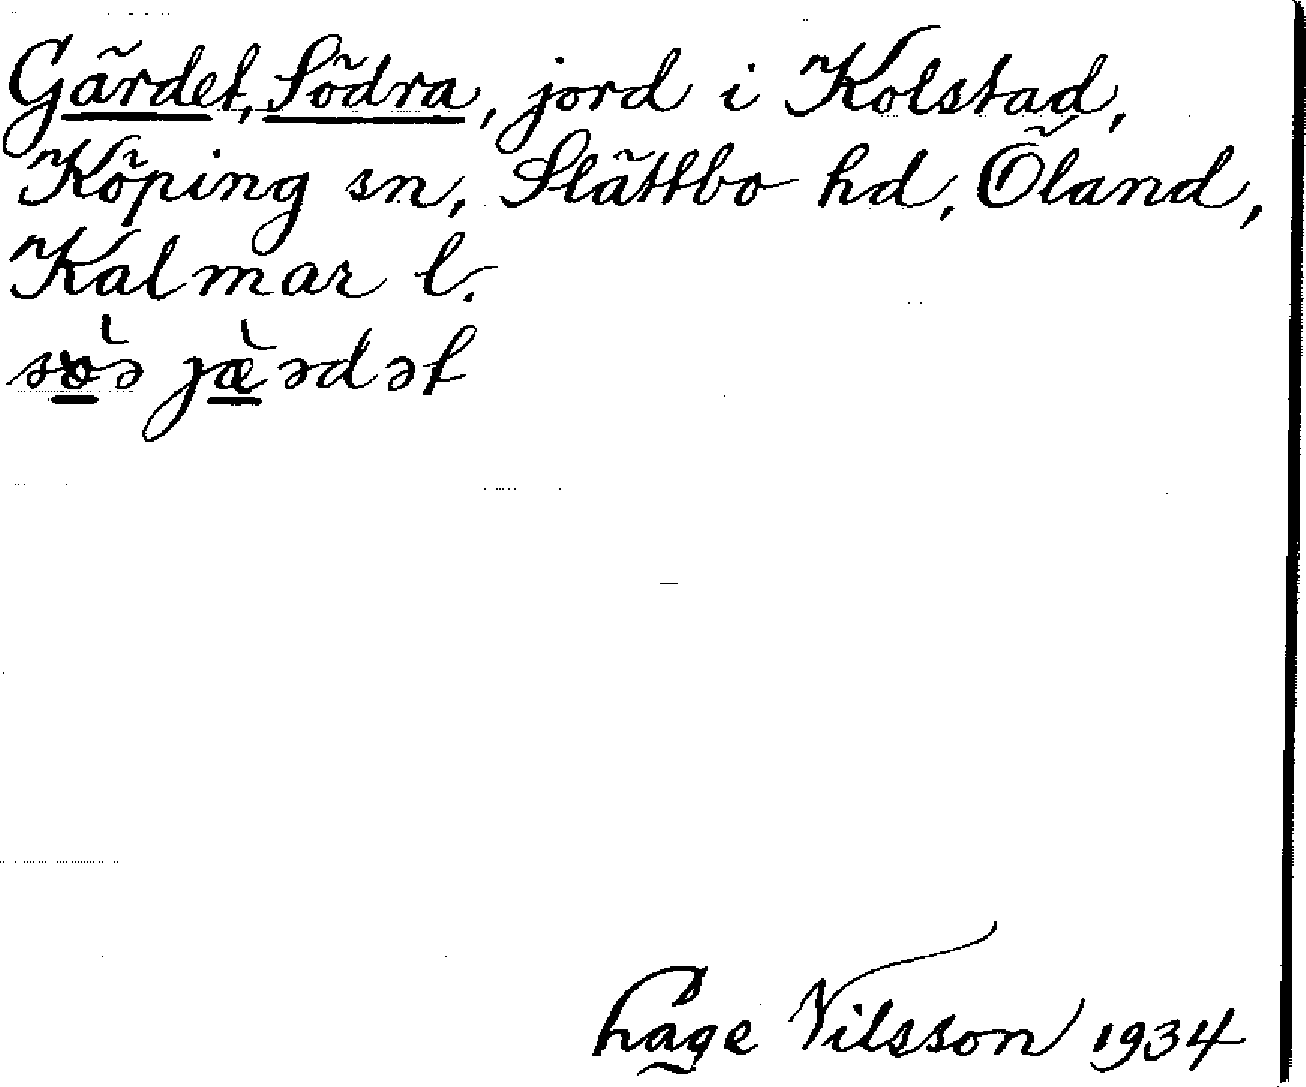 Gärdet, Södra, jord i Kolstad,
Köping sn, Slättbo hd, Öland,
Kalmar l.
sö̀ə jæ̀ədət
Åge Nilsson 1934